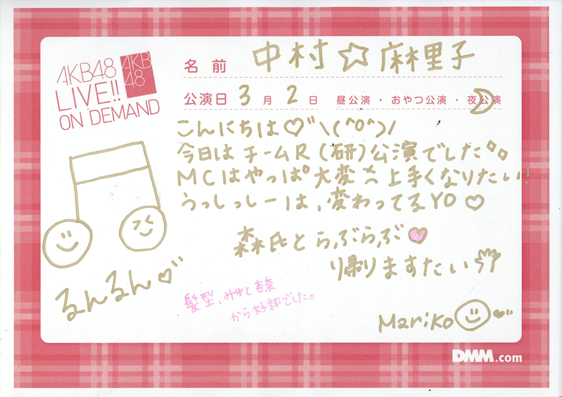 AKB48
LIVE!!
ON DEMAND
AKB
48
名前 中村☆麻里子
公演日 3月2日 昼公演・おやつ公演・夜公演
こんにちは♡\(^o^)/
今日はチームR(研)公演でした
MCはやっぱ大変 上手くなりたい
うっしっしーは、変わってるYO♡
森氏とらぶらぶ♡
りますたい
るんるん♡
髪型、みゆと杏菜
から好評でした。
Mariko
DMM.com